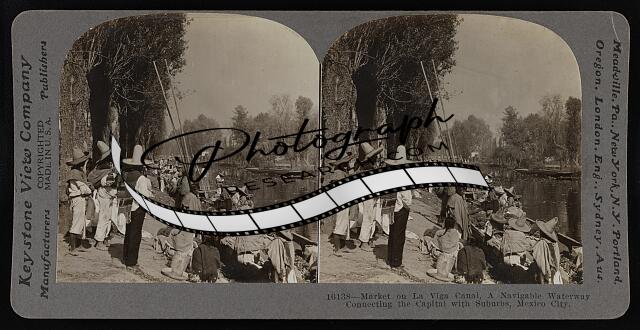 Keystone View Company
Manufacturers
COPYRIGHTED
MADE IN U.S.A.
Publishers
Photograph
RESEARCH.COM
Meadville, Pa., New York, N.Y., Portland,
Oregon, London, Eng., Sydney, Aus.
16138—Market on La Viga Canal, A Navigable Waterway
Connecting the Capital with Suburbs, Mexico City.